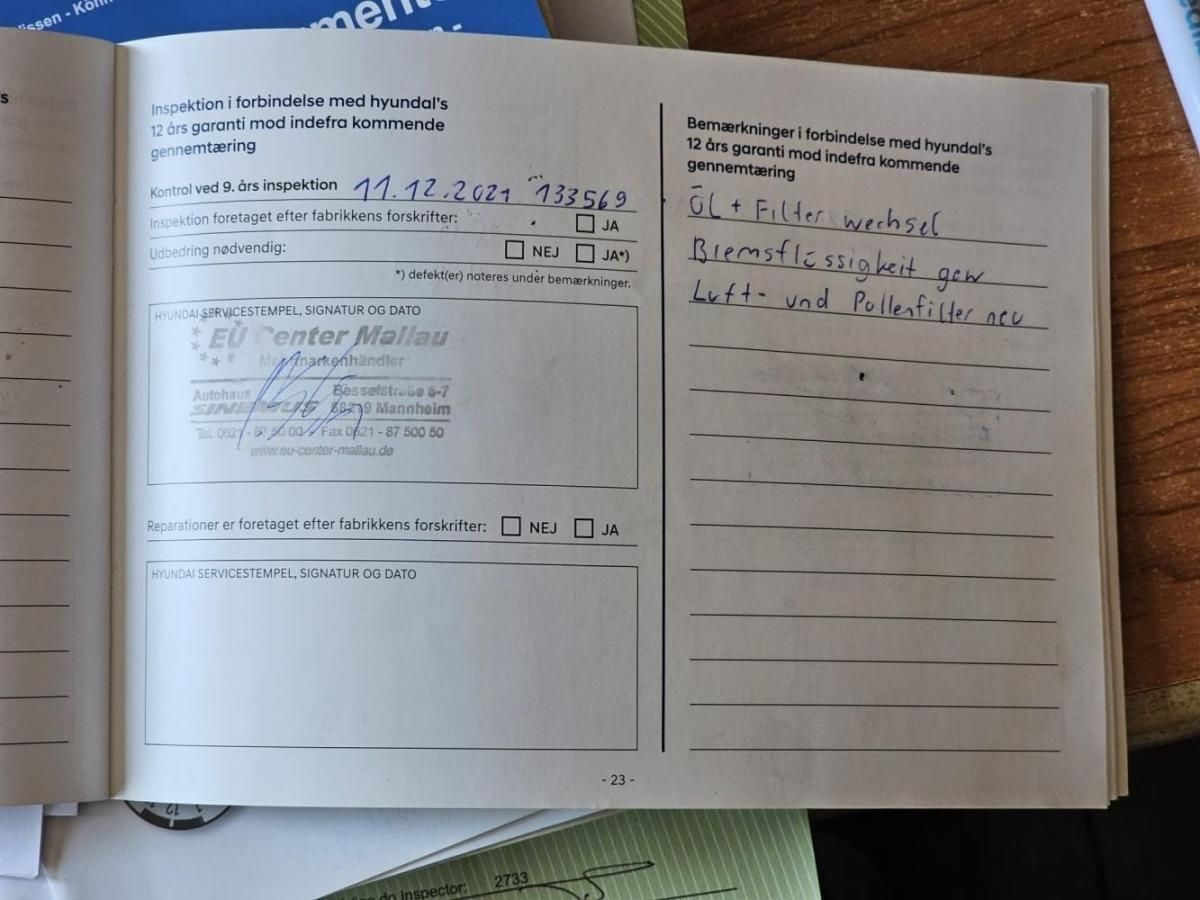 issen - Könn
Inspektion i forbindelse med hyundai's
12 års garanti mod indefra kommende
gennemtæring
Kontrol ved 9. års inspektion 11.12.2021 133569
Inspektion foretaget efter fabrikkens forskrifter: JA
Udbedring nødvendig: NEJ JA*)
*) defekt(er) noteres under bemærkninger.
HYUNDAI SERVICESTEMPEL, SIGNATUR OG DATO
EU Center Mallau
Autohaus Besselstraße 5-7
Mannheim
Fax 0621 - 87 500 50
www.eu-center-mallau.de
Reparationer er foretaget efter fabrikkens forskrifter: NEJ JA
HYUNDAI SERVICESTEMPEL, SIGNATUR OG DATO
- 23 -
Bemærkninger i forbindelse med hyundai's
12 års garanti mod indefra kommende
gennemtæring
ÖL + Filter wechsel
Bremsflüssigkeit gew
Luft- und Pollenfilter neu
do Inspector: 2733